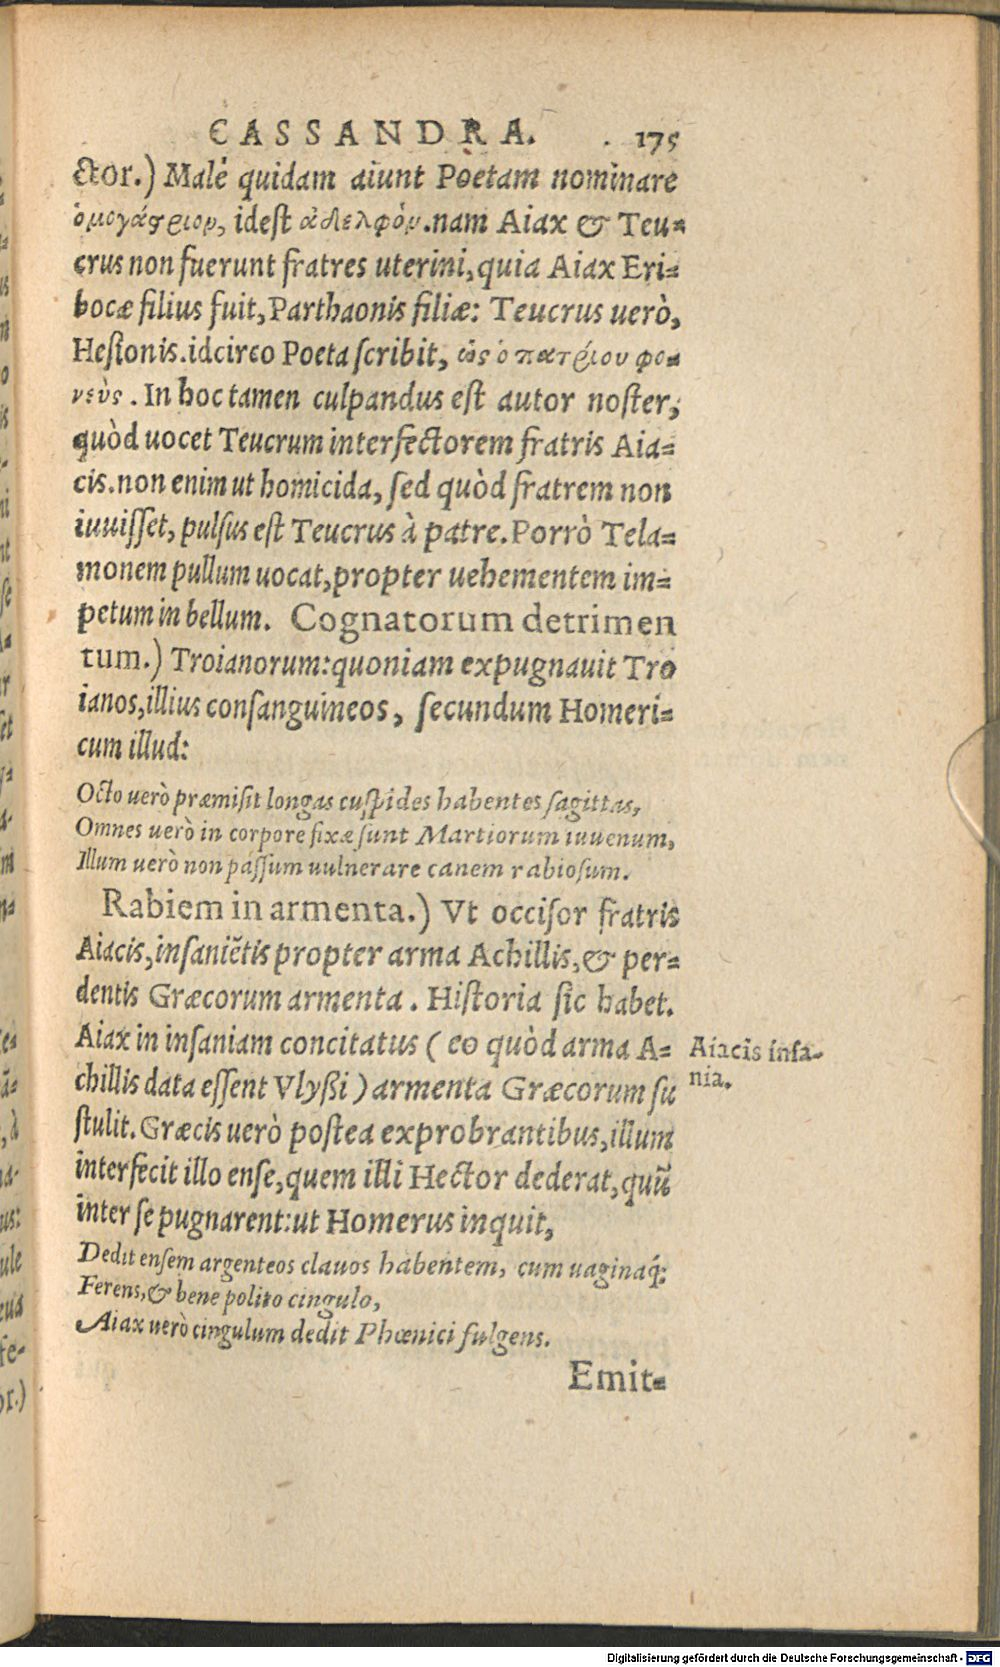 CASSANDRA. 175
ctor.) Malè quidam aiunt Poetam nominare
ὁμογάςριον, idest ἀδελφὸν. nam Aiax & Teu-
crus non fuerunt fratres uterini, quia Aiax Eri-
bocæ filius fuit, Parthaonis filiæ: Teucrus uerò,
Hesionis. idcirco Poeta scribit, ὡς ὁ πατρίου φο-
νεὺς. In hoc tamen culpandus est autor noster,
quòd uocet Teucrum interfectorem fratris Aia-
cis. non enim ut homicida, sed quòd fratrem non
iuuisset, pulsus est Teucrus à patre. Porrò Tela-
monem pullum uocat, propter uehementem im-
petum in bellum. Cognatorum detrimen
tum.) Troianorum: quoniam expugnauit Tro
ianos, illius consanguineos, secundum Homeri-
cum illud:
Octo uerò præmisit longas cuspides habentes sagittas,
Omnes uerò in corpore fixæ sunt Martiorum iuuenum,
Illum uerò non passum uulnerare canem rabiosum.
Rabiem in armenta.) Vt occisor fratris
Aiacis, insaniẽtis propter arma Achillis, & per-
dentis Græcorum armenta. Historia sic habet.
Aiax in insaniam concitatus (eo quòd arma A-
chillis data essent Vlyßi) armenta Græcorum su
stulit. Græcis uerò postea exprobrantibus, illum
interfecit illo ense, quem illi Hector dederat, quũ
inter se pugnarent: ut Homerus inquit,
Dedit ensem argenteos clauos habentem, cum uaginaq́;
Ferens, & bene polito cingulo,
Aiax uerò cingulum dedit Phœnici fulgens.
Emit-
Aiacis insa-
nia.
Digitalisierung gefördert durch die Deutsche Forschungsgemeinschaft - DFG